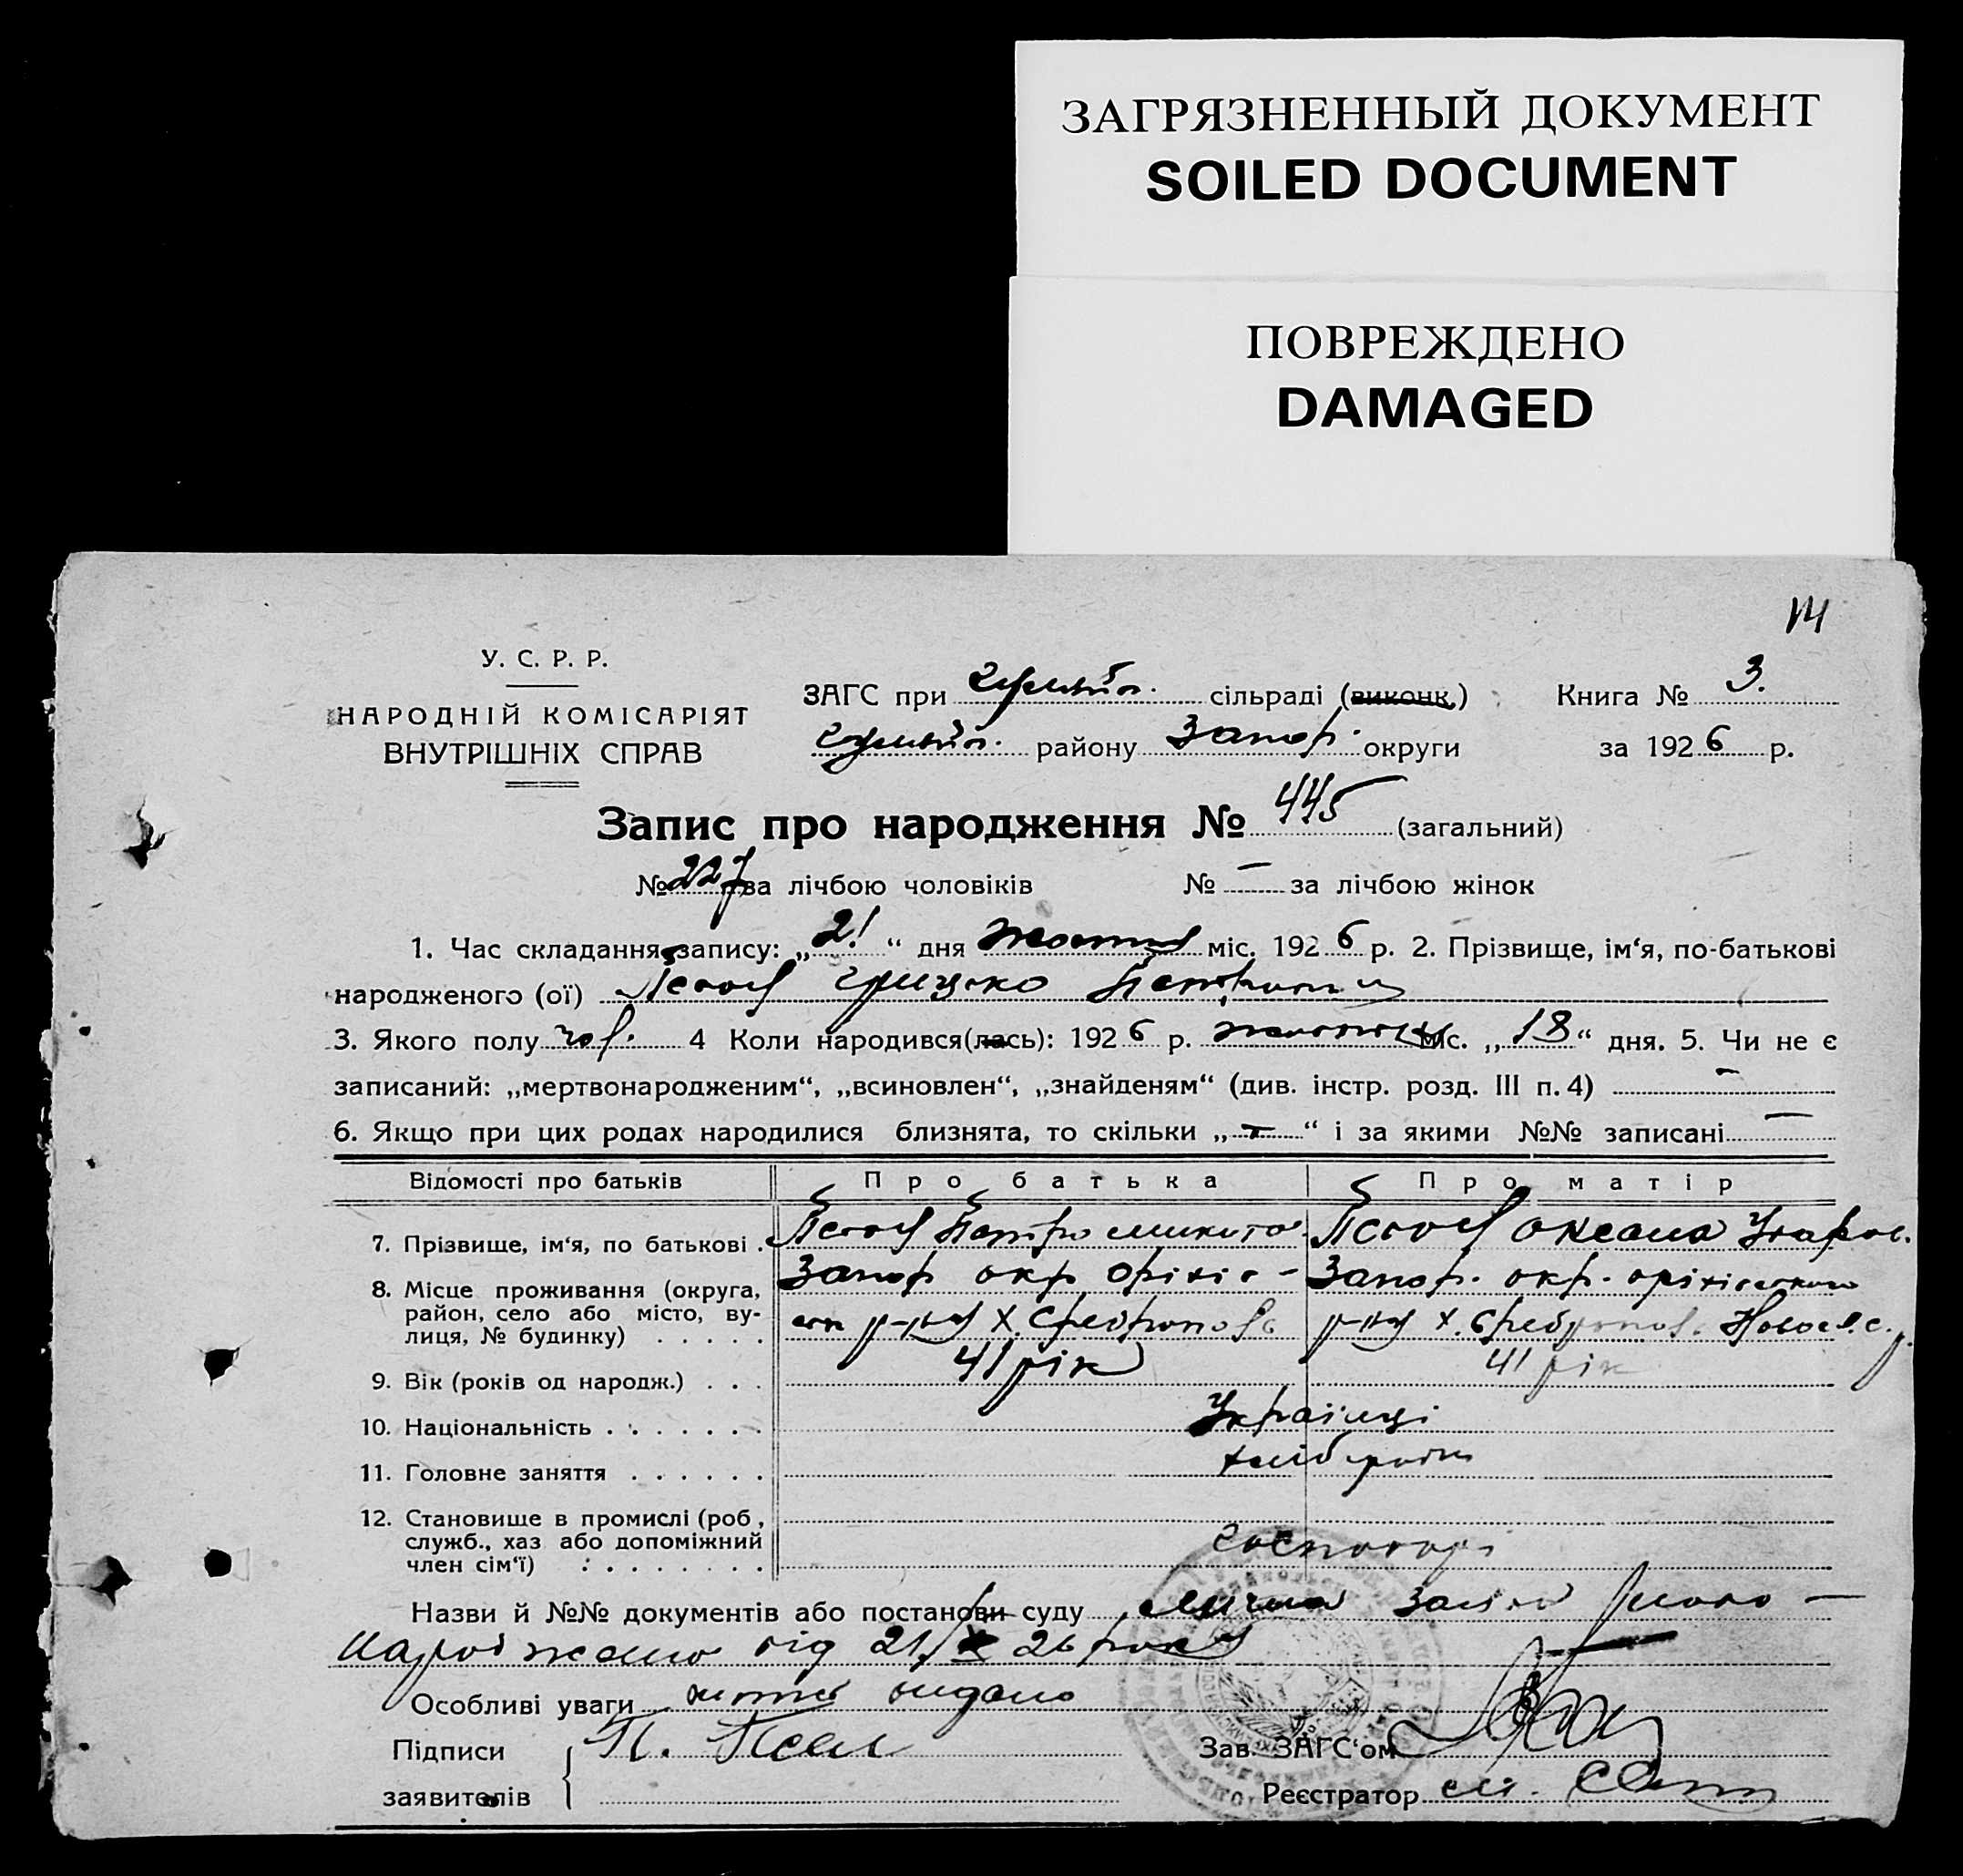 ЗАГРЯЗНЕННЫЙ ДОКУМЕНТ
SOILED DOCUMENT
ПОВРЕЖДЕНО
DAMAGED
14
У. С. Р. Р.
НАРОДНІЙ КОМІСАРІЯТ
ВНУТРІШНІХ СПРАВ
ЗАГС при сільраді (виконк.) Книга № 3.
району Запор. округи за 1926 р.
Запис про народження № 445 (загальний)
№ 227 за лічбою чоловіків № — за лічбою жінок
1. Час складання запису: „21“ дня жовтня міс. 1926 р. 2. Прізвище, ім‘я, по-батькові
народженого (ої) Грицько Петрович
3. Якого полу чол. 4 Коли народився(лась): 1926 р. жовтня міс. „18“ дня. 5. Чи не є
записаний: „мертвонародженим“, „всиновлен“, „знайденям“ (див. інстр. розд. III п. 4) —
6. Якщо при цих родах народилися близнята, то скільки „—“ і за якими №№ записані —
Відомості про батьків Про батька Про матір
7. Прізвище, ім‘я, по батькові . Петро Микита Оксана
8. Місце проживання (округа, Запор окр Оріхів- Запор. окр. Оріхівського
район, село або місто, ву- р-ну Х. р-ну Х.
лиця, № будинку) . . . . .
9. Вік (років од народж.) . . . 41 рік 41 рік
10. Національність . . . . . . . Українці
11. Головне заняття . . . . . . хлібороби
12. Становище в промислі (роб ,
служб., хаз або допоміжний господарі
член сім‘ї) : . . . . . . .
Назви й №№ документів або постанови суду
народження від 21/X 26 року
Особливі уваги видано
Підписи П. Зав. ЗАГС‘ом
заявителів Реєстратор